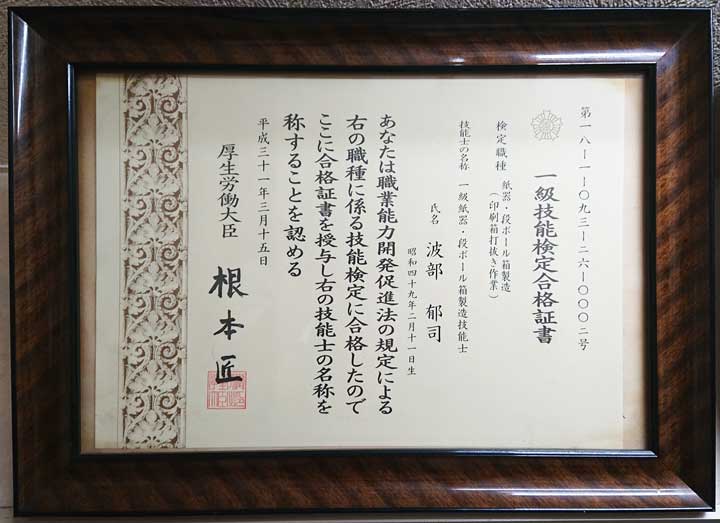 第一八ー一ー〇九三ー二六ー〇〇〇二号
一級技能検定合格証書
検定職種 紙器・段ボール箱製造
(印刷箱打抜き作業)
技能士の名称 一級紙器・段ボール箱製造技能士
氏名 波部 郁司
昭和四十九年二月十一日生
あなたは職業能力開発促進法の規定による
右の職種に係る技能検定に合格したので
ここに合格証書を授与し右の技能士の名称を
称することを認める
平成三十一年三月十五日
厚生労働大臣 根本匠